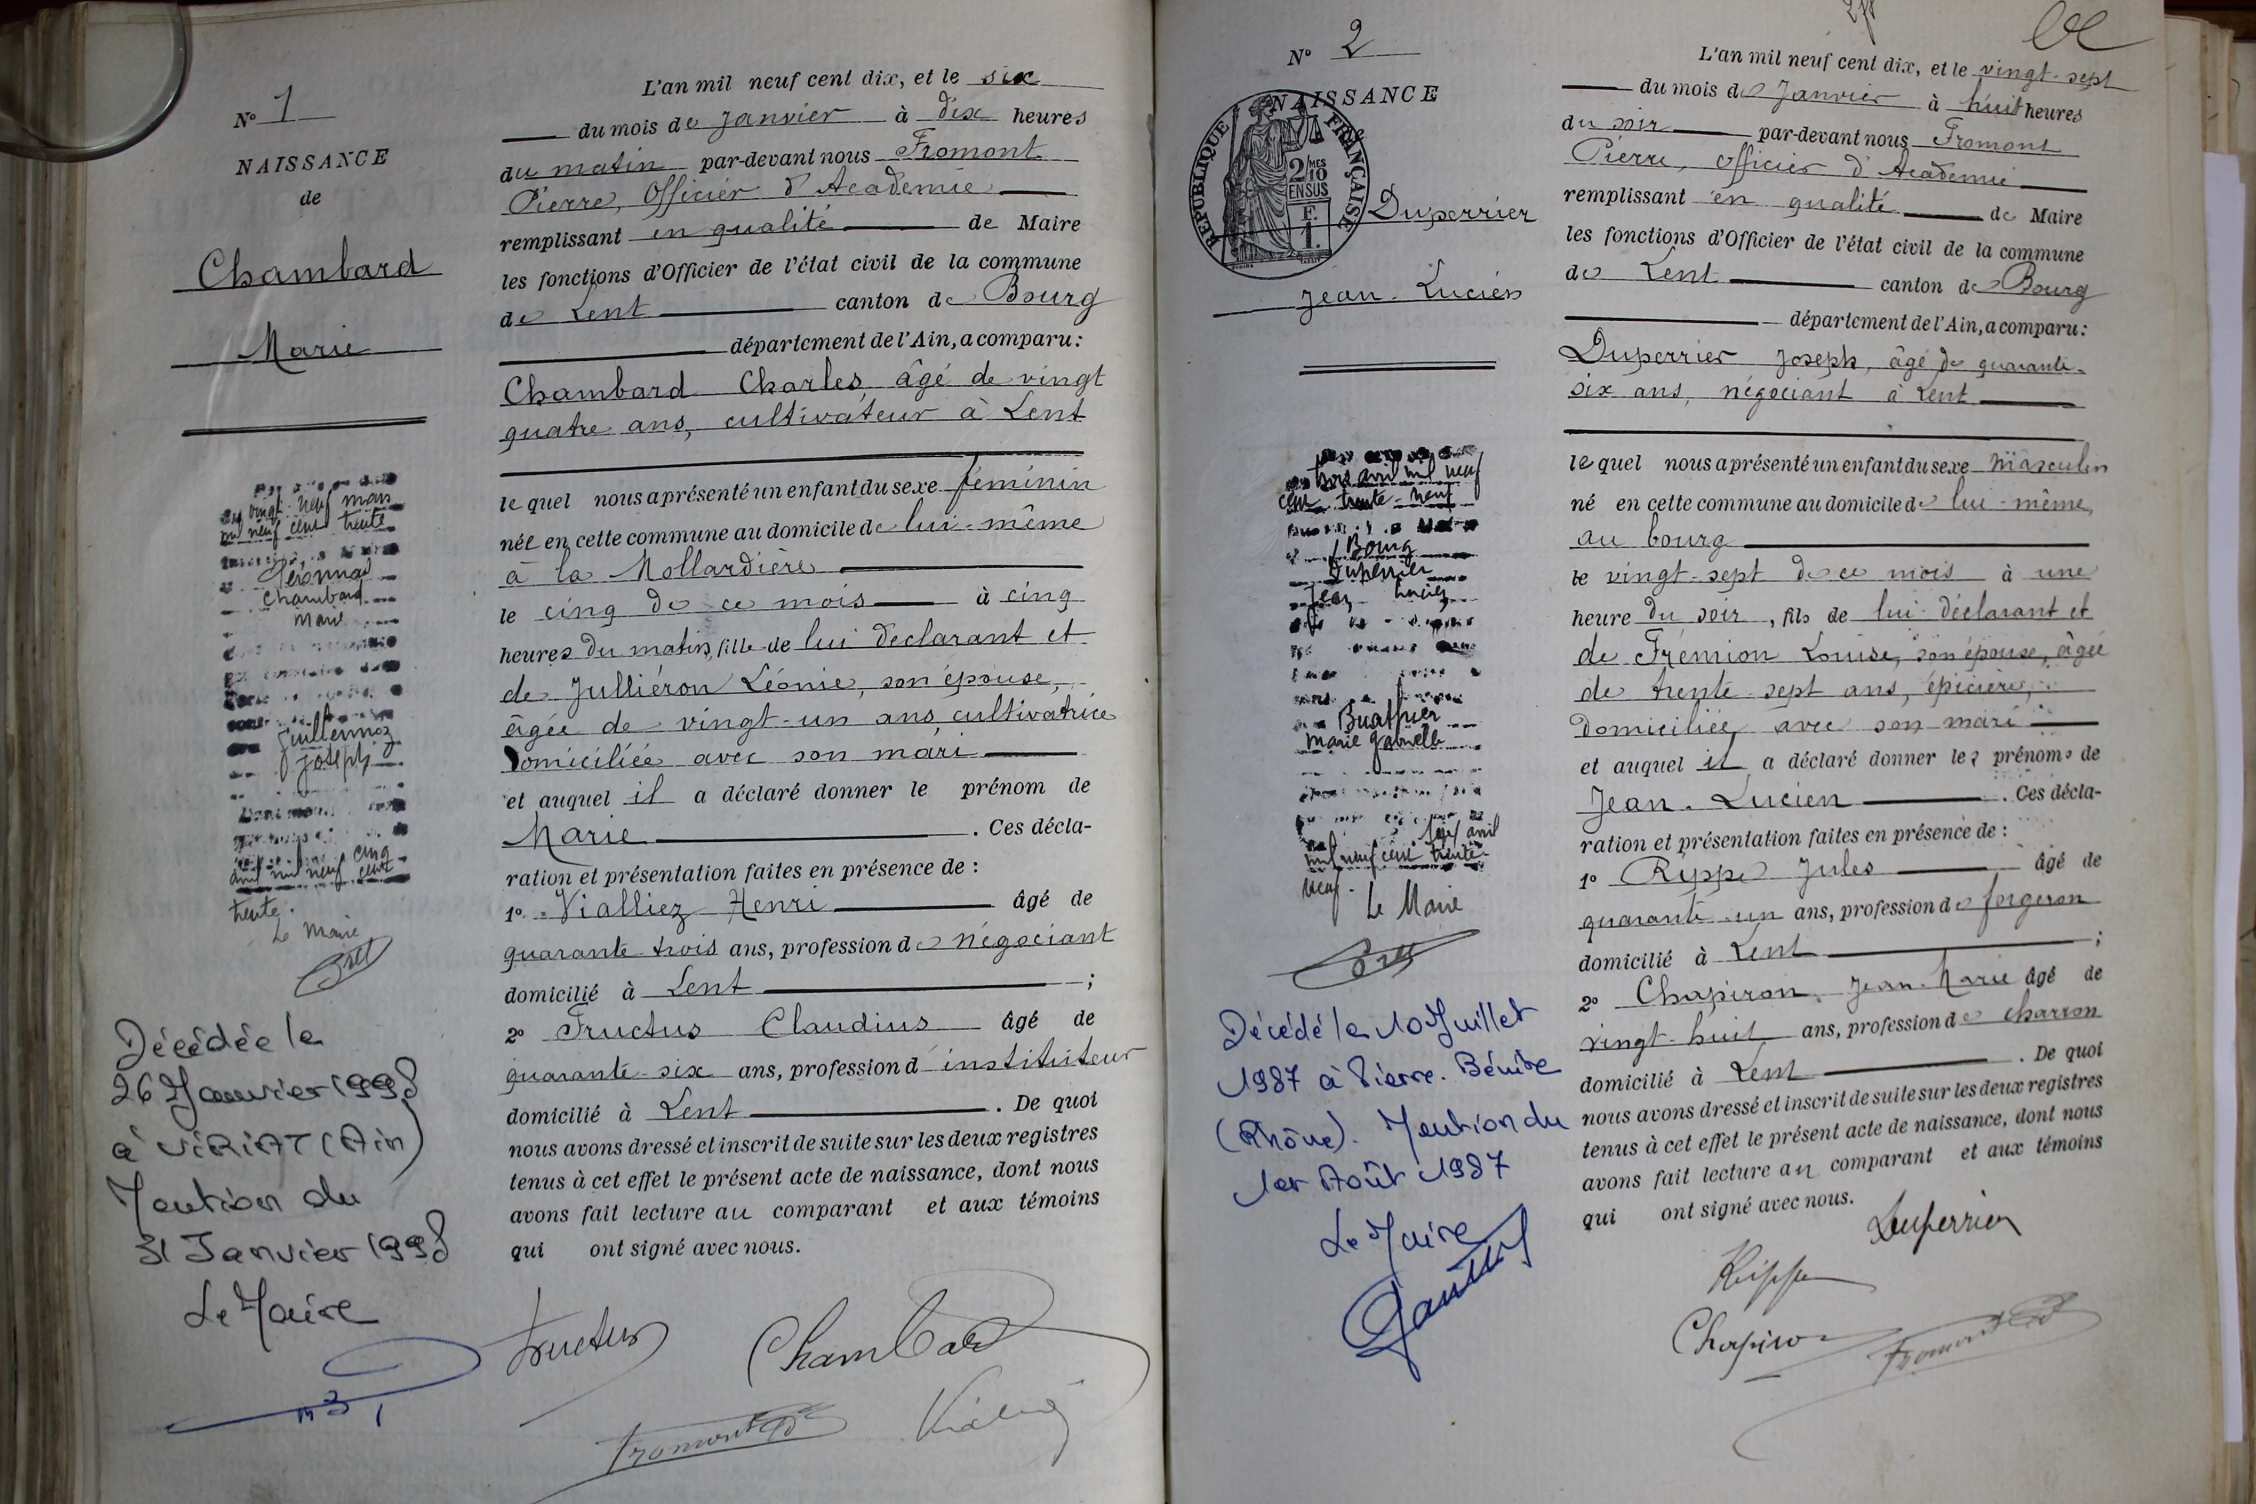 N° 1
NAISSANCE
de
Chambard
Marie
vingt-neuf mars
mil neuf cent trente
Péronnas
Chambard
Marie
Guillermoz
Joseph
cinq
avril mil neuf cent
trente.
Le Maire
Décédée le
26 Janvier 1998
à VIRIAT (Ain)
Mention du
31 Janvier 1998
Le Maire
L'an mil neuf cent dix, et le six
du mois de Janvier à dix heures
du matin par-devant nous Fromont
Pierre, Officier d'Académie
remplissant en qualité de Maire
les fonctions d'Officier de l'état civil de la commune
de Lent canton de Bourg
département de l'Ain, a comparu:
Chambard Charles, âgé de vingt
quatre ans, cultivateur à Lent
le quel nous a présenté un enfant du sexe féminin
née en cette commune au domicile de lui-même
à la Mollardière
le cinq de ce mois à cinq
heures du matin, fille de lui déclarant et
de Julliéron Léonie, son épouse,
âgée de vingt-un ans cultivatrice
domiciliée avec son mari
et auquel il a déclaré donner le prénom de
Marie . Ces décla-
ration et présentation faites en présence de :
1° Vialliez Henri âgé de
quarante-trois ans, profession de négociant
domicilié à Lent ;
2° Fructus Claudius âgé de
quarante-six ans, profession d'instituteur
domicilié à Lent . De quoi
nous avons dressé et inscrit de suite sur les deux registres
tenus à cet effet le présent acte de naissance, dont nous
avons fait lecture au comparant et aux témoins
qui ont signé avec nous.
Fructus
Chambard
Fromont
N° 2
NAISSANCE
RÉPUBLIQUE FRANÇAISE
2/10
MES
EN SUS
F.
1.
Duperrier
Jean-Lucien
trois avril mil neuf
cent trente-neuf
Bourg
Duperrier
Jean Lucien
Buathier
Marie Gabrielle
avril
mil neuf cent trente-
neuf.
Le Maire
Décédé le 10 Juillet
1987 à Pierre-Bénite
(Rhône). Mention du
1er Août 1987
Le Maire
L'an mil neuf cent dix, et le vingt-sept
du mois de Janvier à huit heures
du soir par-devant nous Fromont
Pierre, Officier d'Académie
remplissant en qualité de Maire
les fonctions d'Officier de l'état civil de la commune
de Lent canton de Bourg
département de l'Ain, a comparu:
Duperrier Joseph, âgé de quarante-
six ans, négociant à Lent
le quel nous a présenté un enfant du sexe masculin
né en cette commune au domicile de lui-même,
au bourg
le vingt-sept de ce mois à une
heure du soir, fils de lui déclarant et
de Frémion Louise, son épouse, âgée
de trente-sept ans, épicière,
domiciliée avec son mari
et auquel il a déclaré donner les prénoms de
Jean-Lucien . Ces décla-
ration et présentation faites en présence de :
1° Ryppe Jules âgé de
quarante-un ans, profession de forgeron
domicilié à Lent ;
2° Chapiron, Jean-Marie âgé de
vingt-huit ans, profession de charron
domicilié à Lent . De quoi
nous avons dressé et inscrit de suite sur les deux registres
tenus à cet effet le présent acte de naissance, dont nous
avons fait lecture au comparant et aux témoins
qui ont signé avec nous.
Duperrier
Chapiron
Fromont